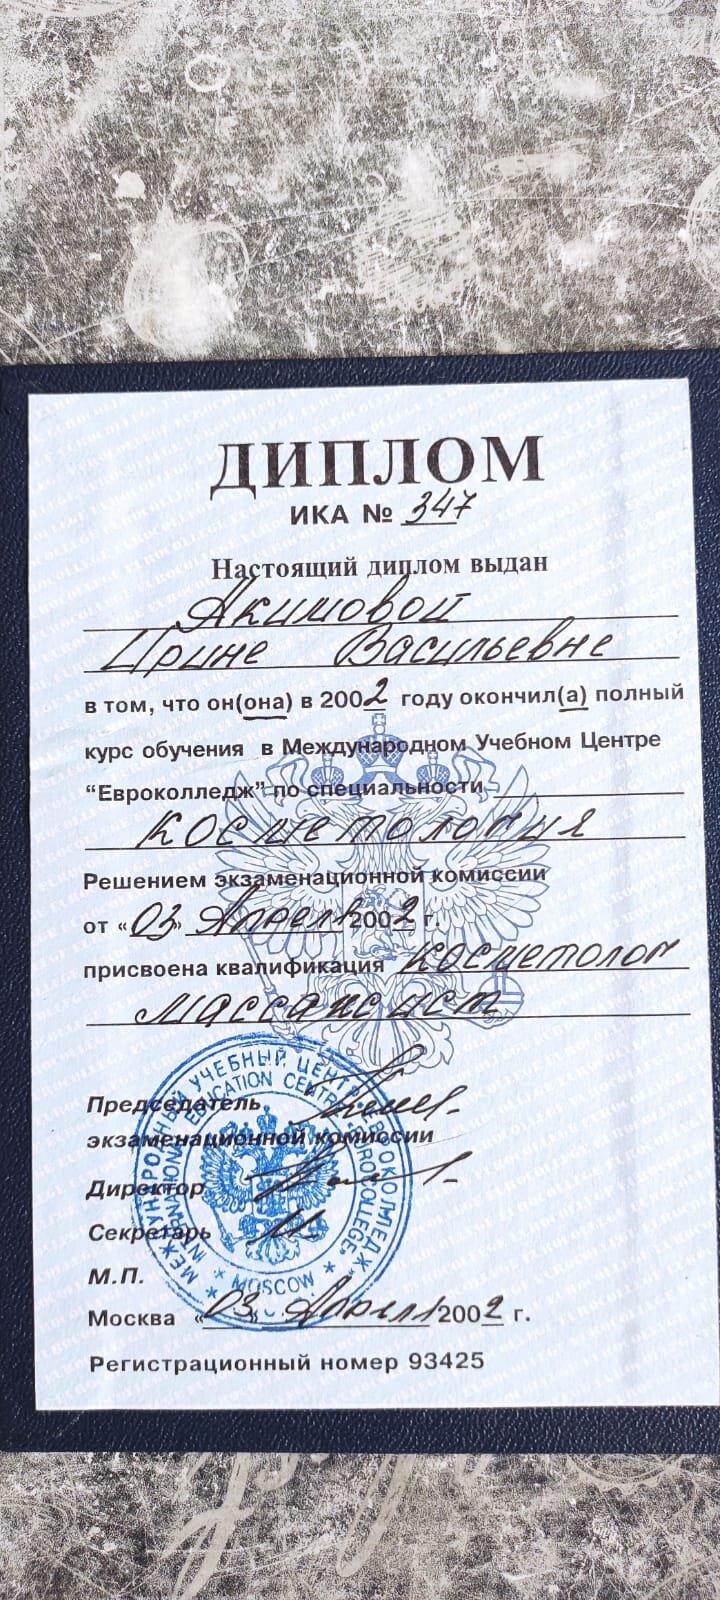 ДИПЛОМ
ИКА № 347
Настоящий диплом выдан
Акимовой
Ирине Васильевне
в том, что он(она) в 2002 году окончил(а) полный
курс обучения в Международном Учебном Центре
“Евроколледж” по специальности
косметология
Решением экзаменационной комиссии
от «03» Апреля 2002 г.
присвоена квалификация косметолог
массажист
Председатель
экзаменационной комиссии
Директор
Секретарь
М.П.
Москва «03» Апреля 2002 г.
Регистрационный номер 93425
МЕЖДУНАРОДНЫЙ УЧЕБНЫЙ ЦЕНТР "ЕВРОКОЛЛЕДЖ"
INTERNATIONAL EDUCATION CENTRE "EUROCOLLEGE"
* MOSCOW *